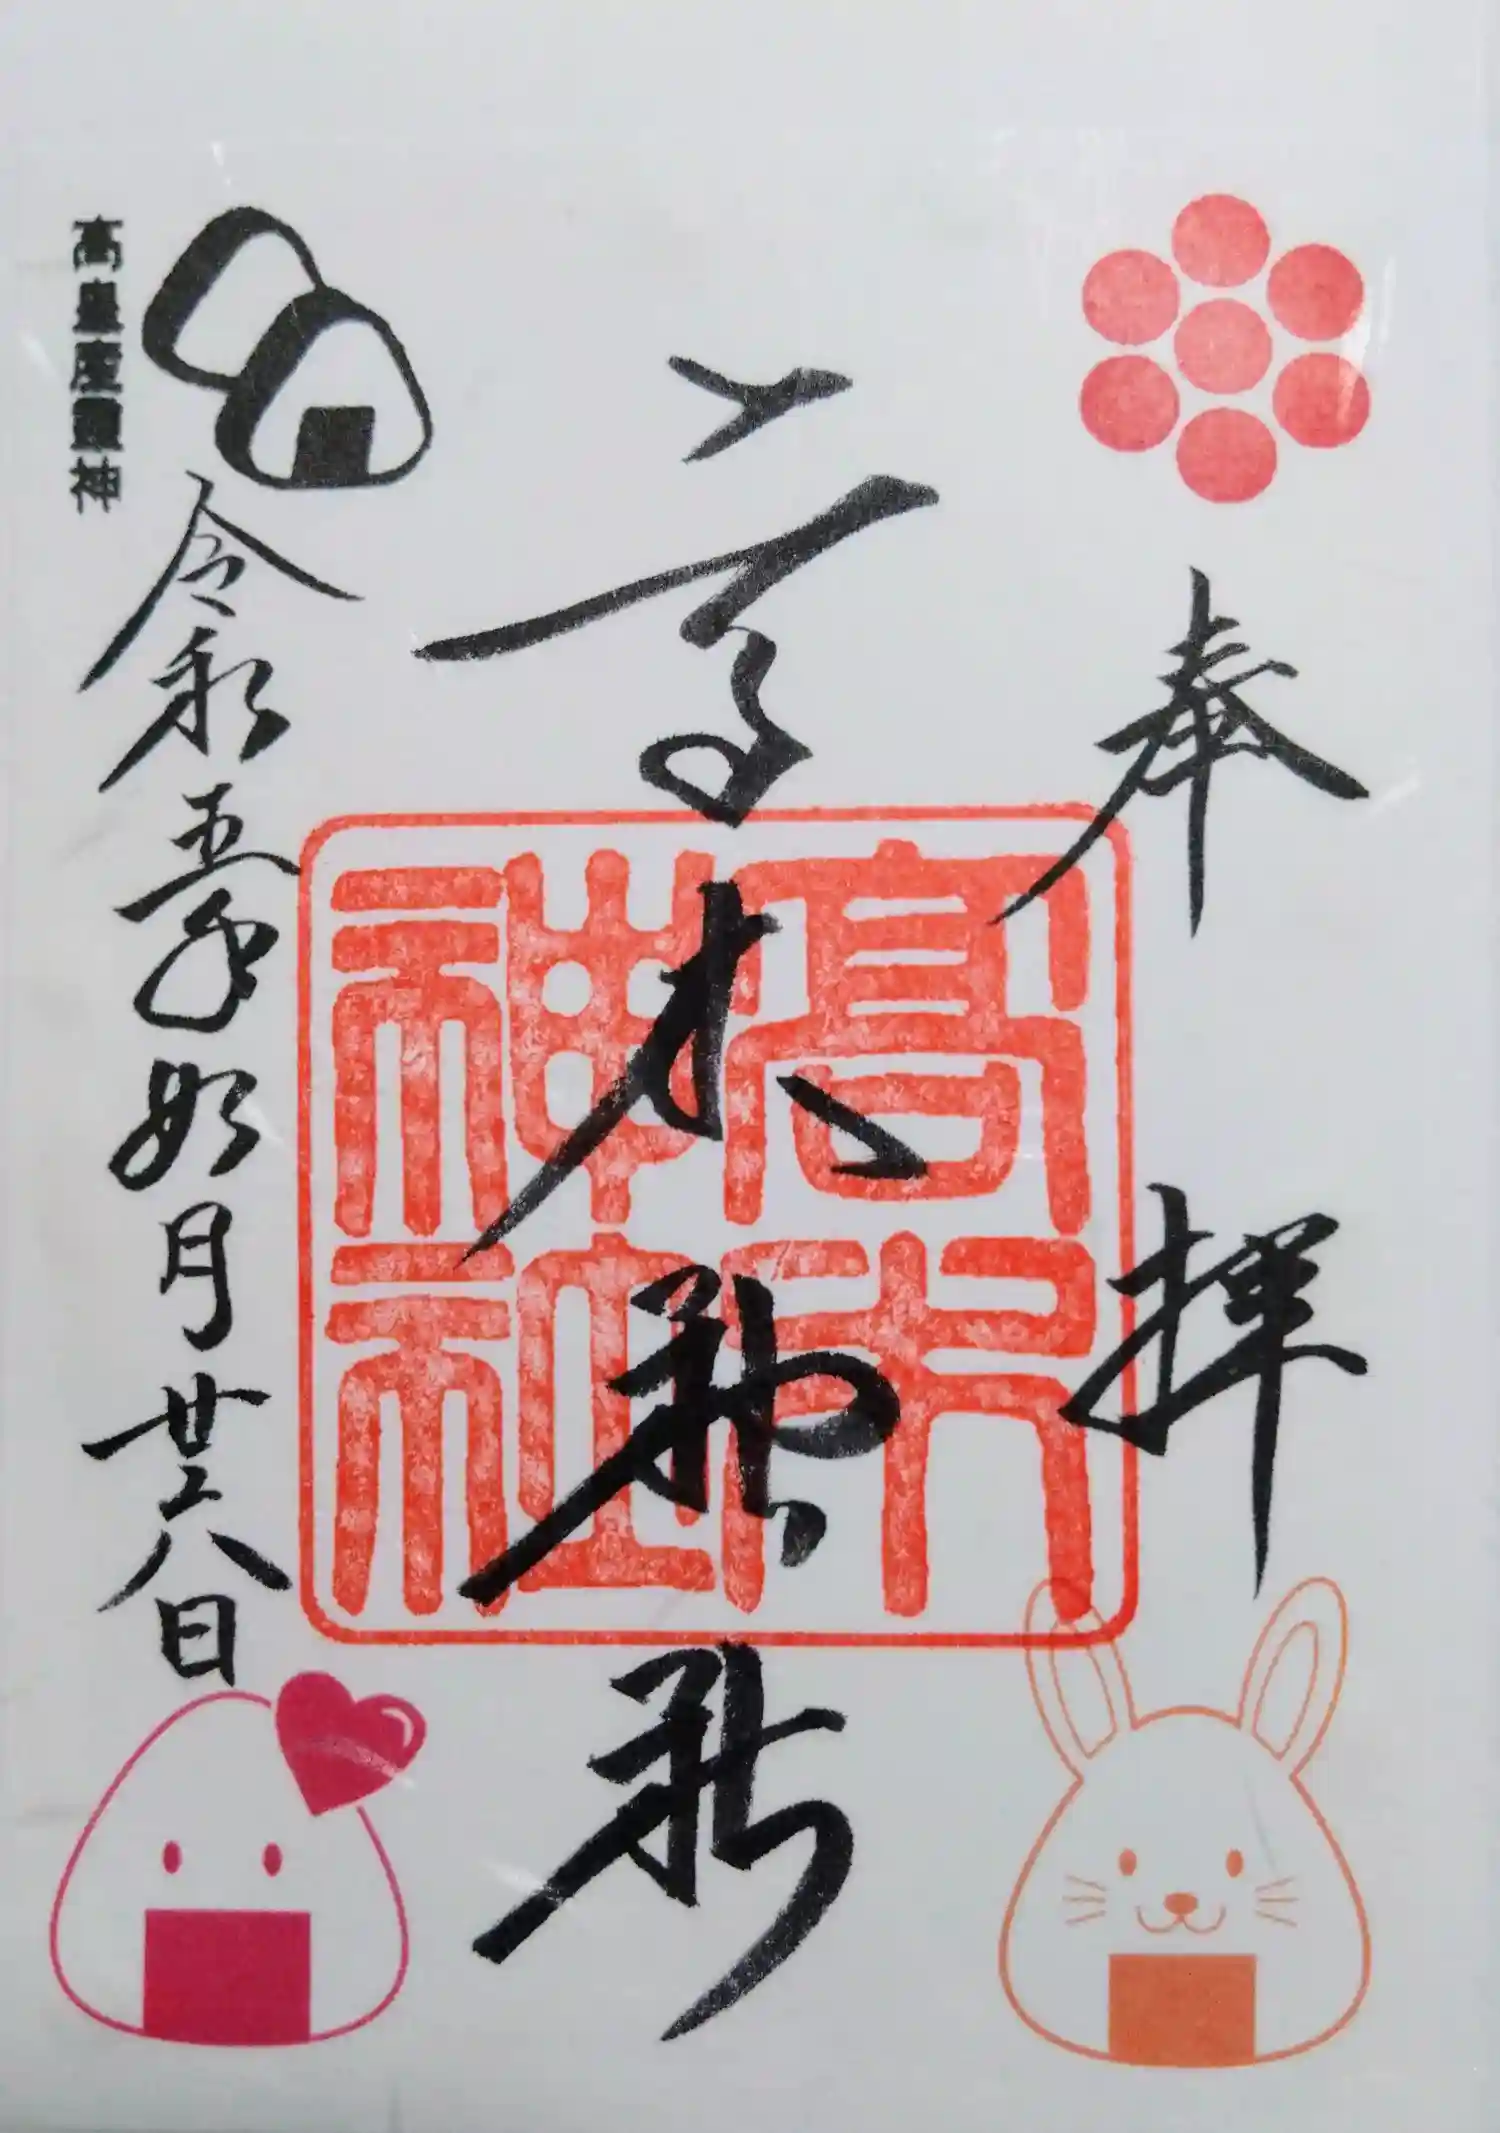 奉拝
高木神社
高木神社
令和五年如月廿八日
高皇産霊神